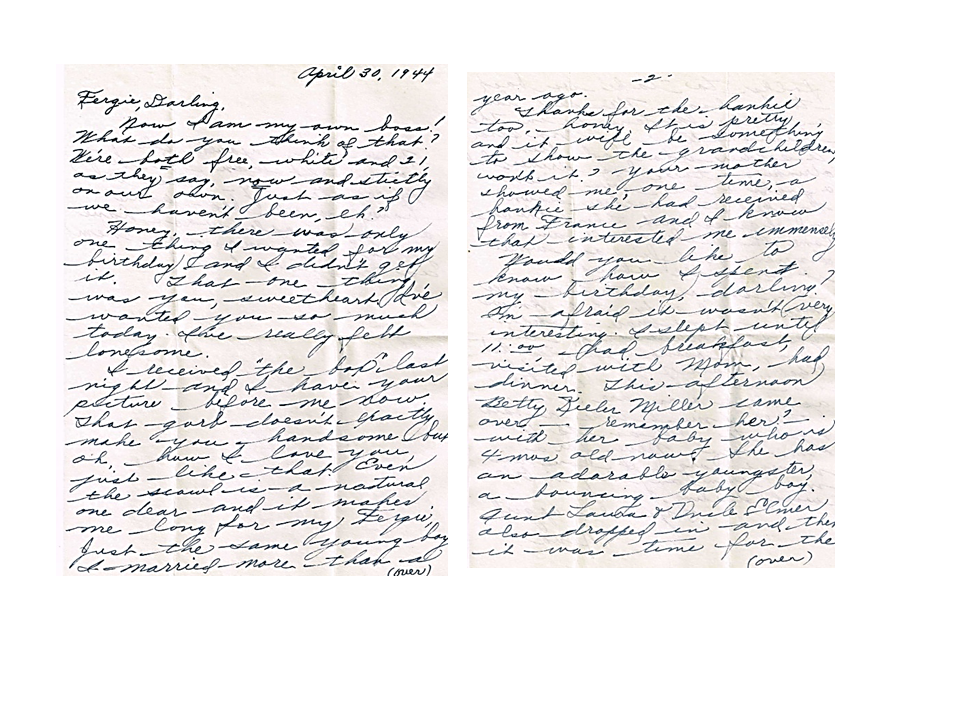 April 30, 1944
Fergie, Darling,
Now I am my own boss!
What do you think of that?
We're both free, white and 21
as they say, now and strictly
on our own. Just as if
we haven't been, eh?
Honey, there was only
one thing I wanted for my
birthday and I didn't get
it. That one thing
was you, sweetheart. I've
wanted you so much
today. I've really felt
lonesome.
I received "the box" last
night and I have your
picture before me now.
That garb doesn't exactly
make you handsome but
oh, how I love you,
just like that. Even
the scowl is a natural
one dear and it makes
me long for my Fergie,
Just the same young boy
I married more than a
(over)
-2-
year ago.
Thanks for the hankie
too, honey. It is pretty
and it will be something
to show the grandchildren,
won't it? Your mother
showed me, one time, a
hankie she had received
from France and I know
that interested me immensely
Would you like to
know how I spent
my birthday, darling?
I'm afraid it wasn't very
interesting. I slept until
11:00 had breakfast,
visited with Mom, had
dinner. This afternoon
Betty Miller came
over remember her?
with her baby who is
4 mos old now. She has
an adorable youngster
a bouncing baby boy.
Aunt Laura & Uncle Elmer
also dropped in and then
it was time for the
(over)